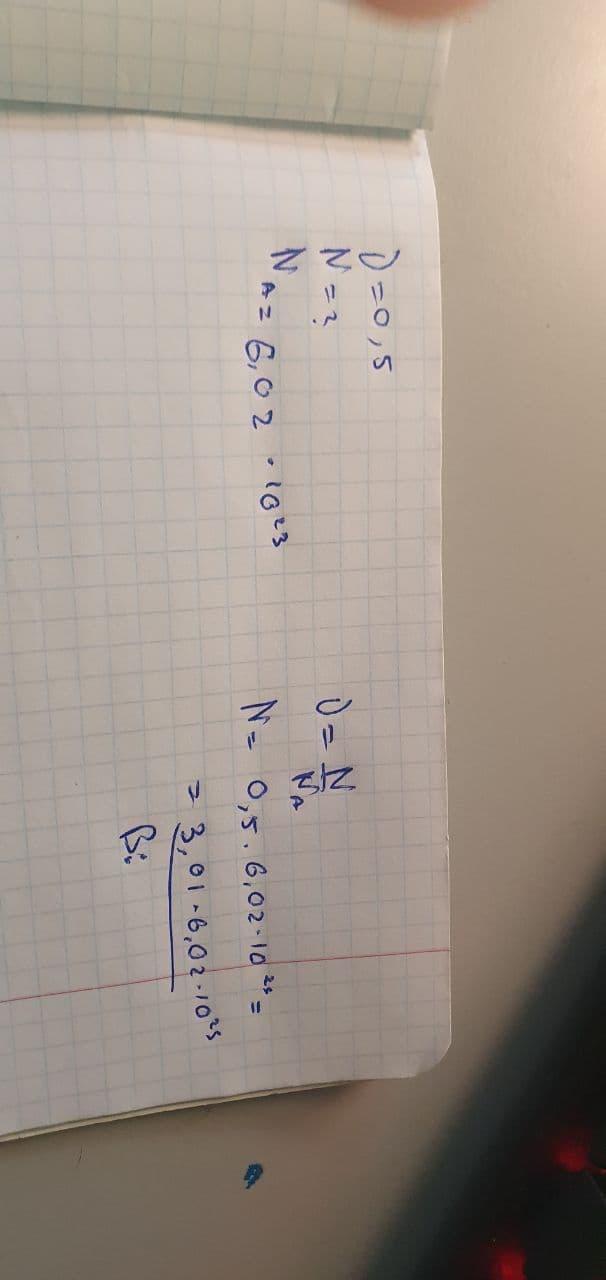 ν = 0,5
N = ?
N_A = 6,02 · 10²³
ν = N/N_A
N = 0,5 · 6,02 · 10²³ =
= 3,01 · 6,02 · 10²³